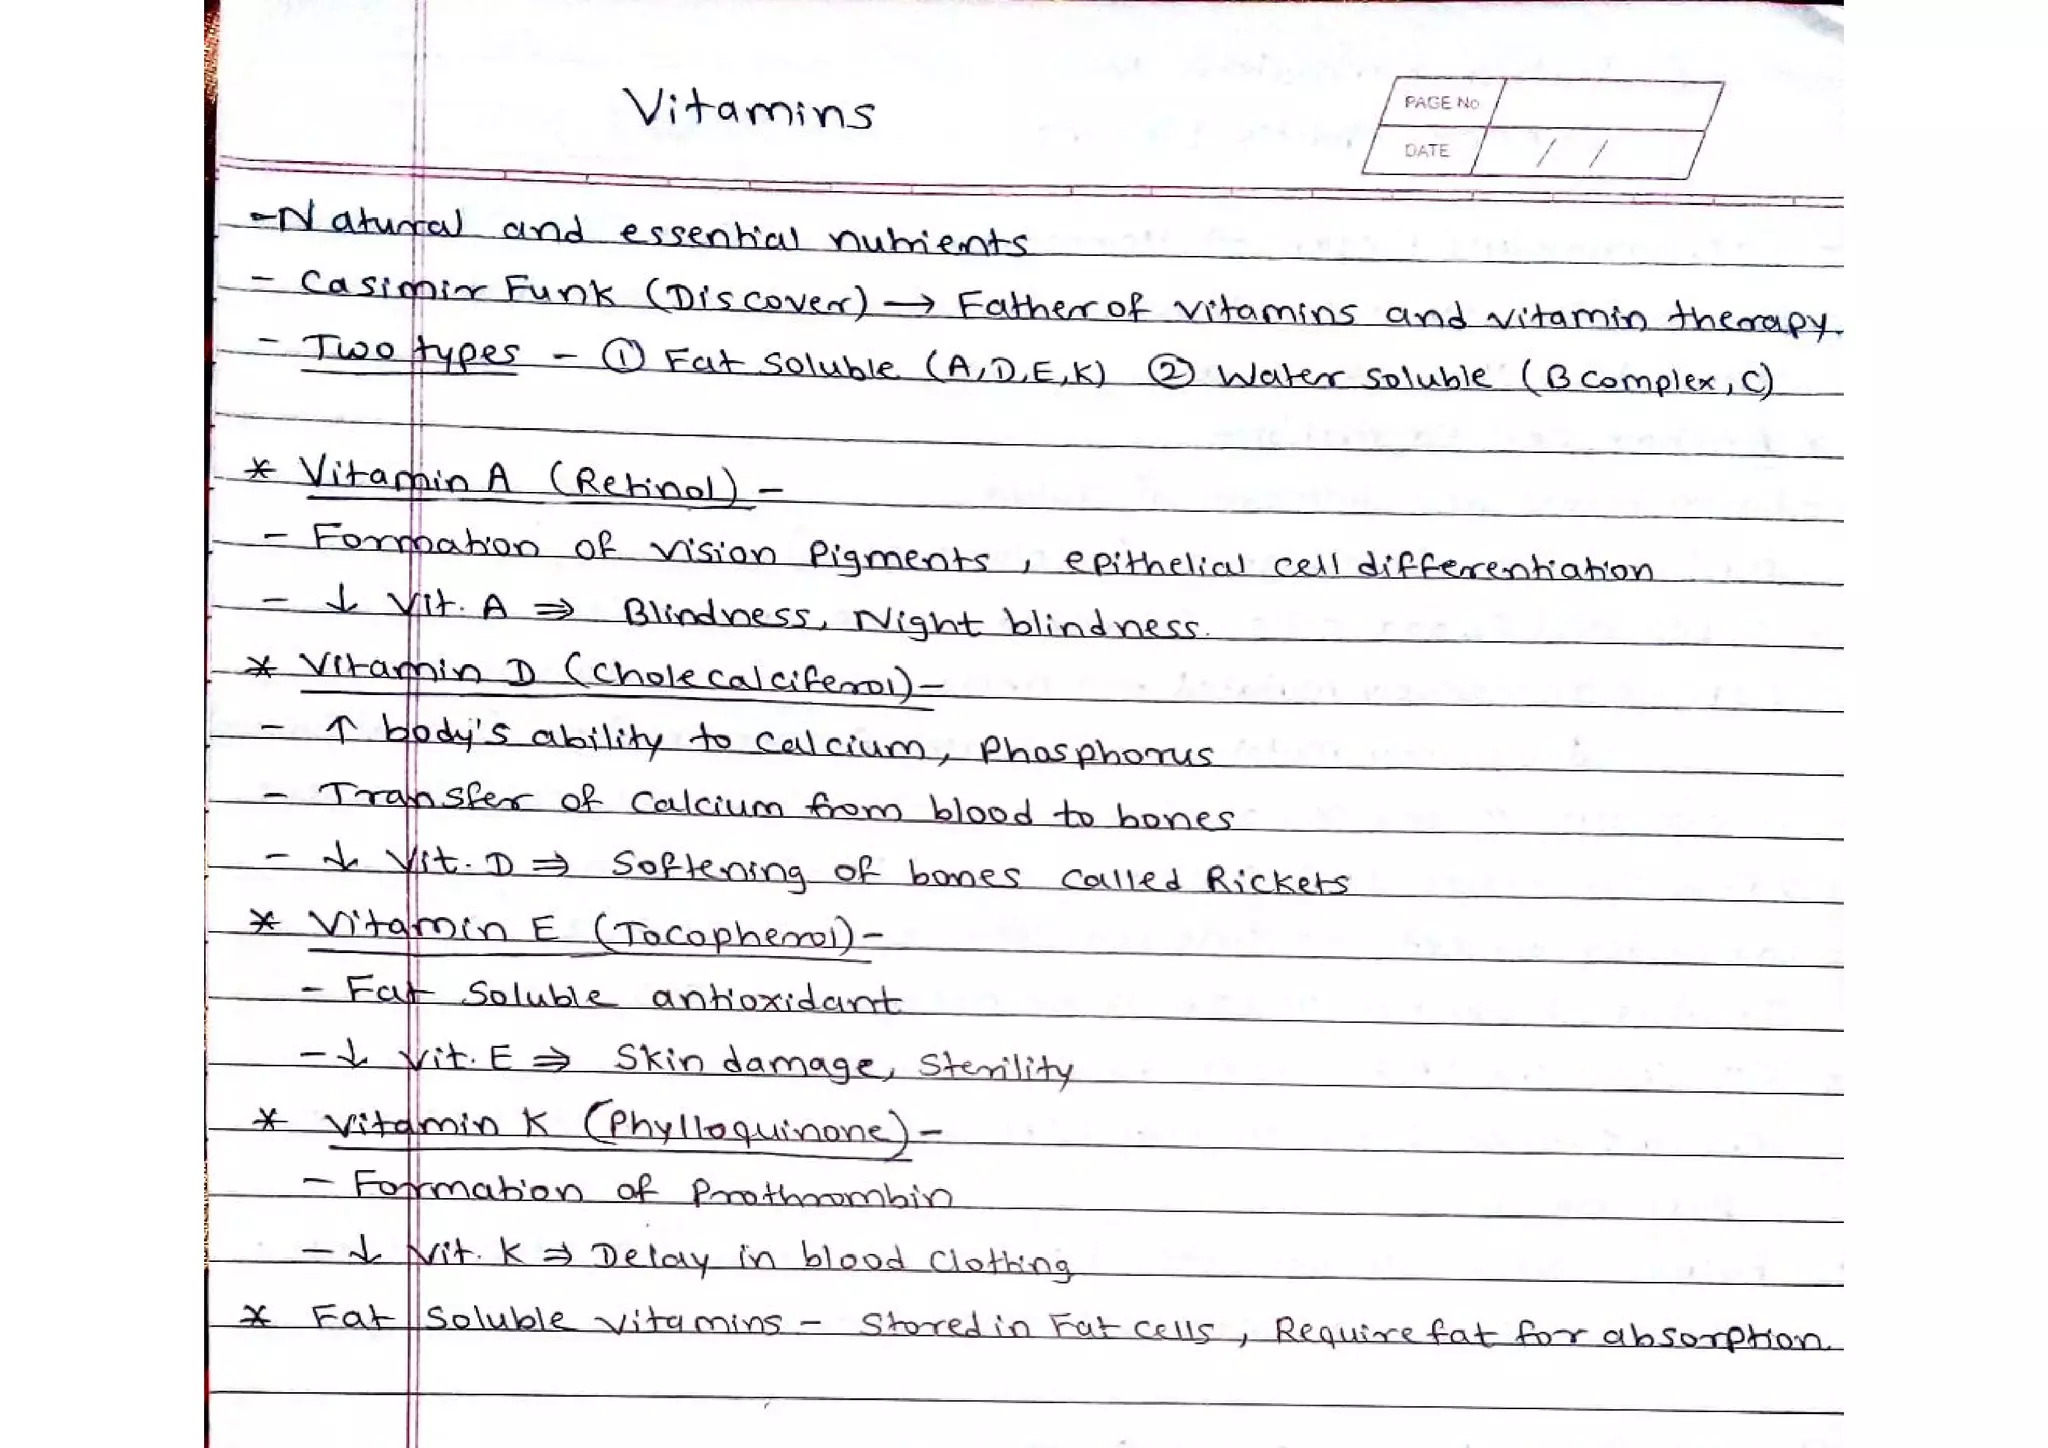 Vitamins
PAGE No
DATE / /
- Natural and essential nutrients
- Casimir Funk (Discover) → Father of vitamins and vitamin therapy.
- Two types - ① Fat soluble (A,D,E,K) ② Water soluble (B complex, C)
* Vitamin A (Retinol) -
- Formation of vision pigments, epithelial cell differentiation
- ↓ Vit. A ⇒ Blindness, Night blindness.
* Vitamin D (Cholecalciferol) -
- ↑ body's ability to calcium, phosphorus
- Transfer of calcium from blood to bones
- ↓ Vit. D ⇒ Softening of bones called Rickets
* Vitamin E (Tocopherol) -
- Fat soluble antioxidant
- ↓ Vit. E ⇒ Skin damage, Sterility
* Vitamin K (Phylloquinone) -
- Formation of Prothrombin
- ↓ Vit. K ⇒ Delay in blood Clotting
* Fat soluble vitamins - Stored in Fat cells, Require fat for absorption.